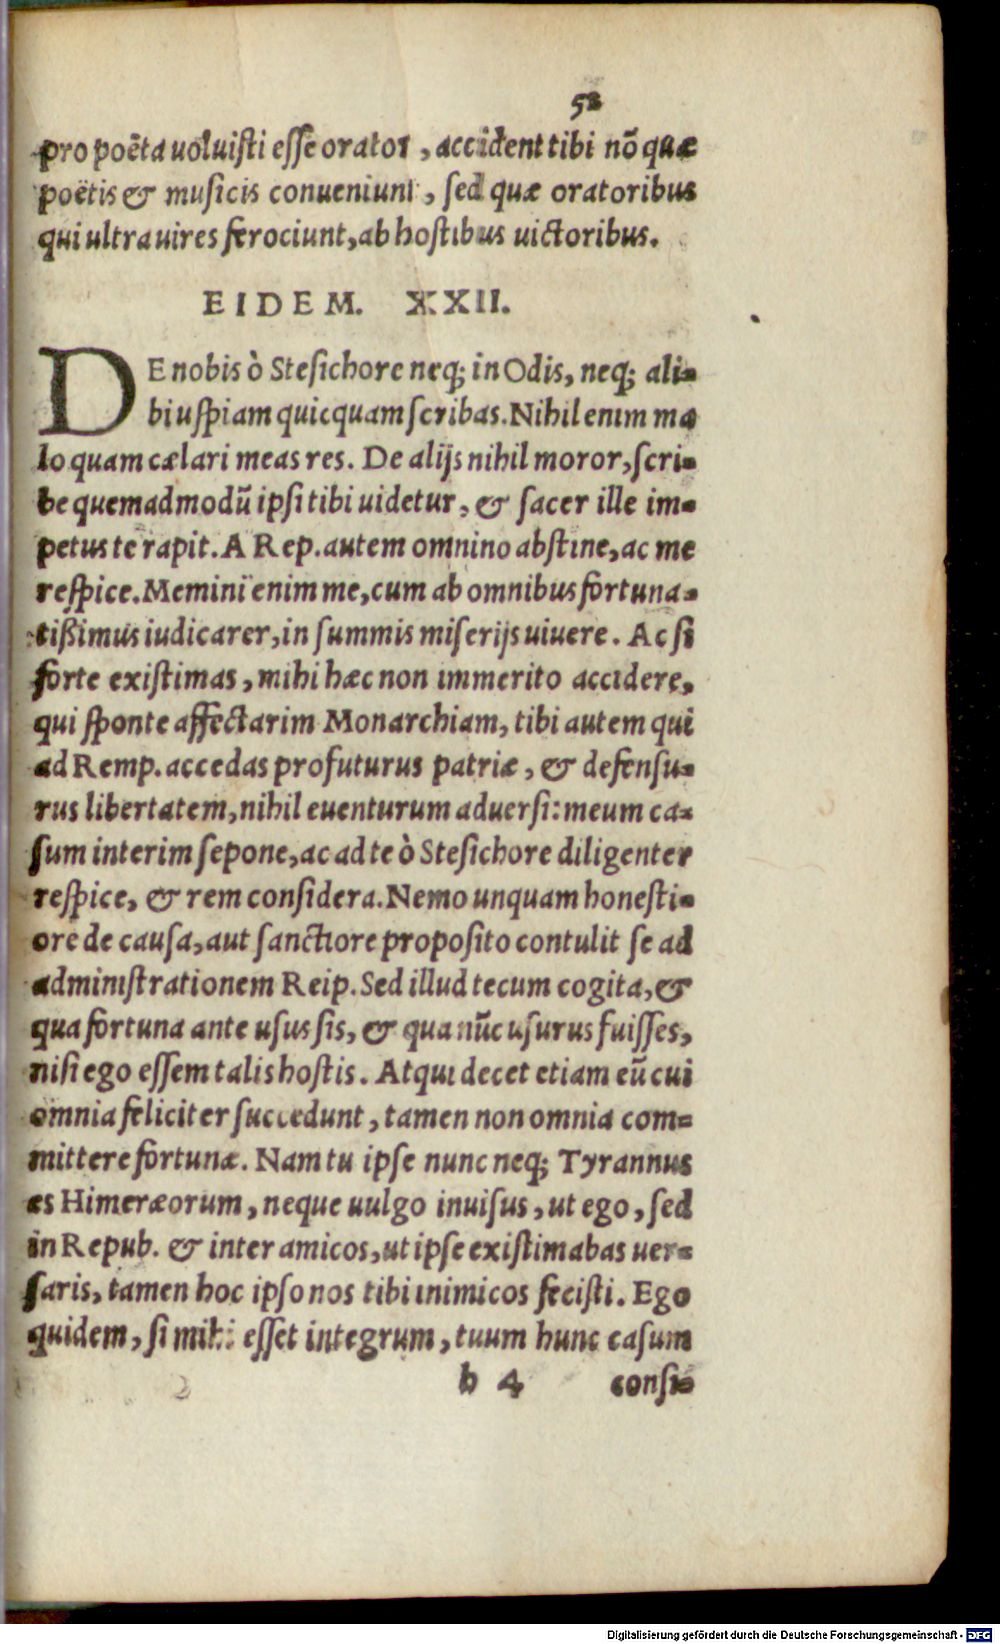 52
pro poëta uoluisti esse orator, accident tibi nō quæ
poëtis & musicis conueniunt, sed quæ oratoribus
qui ultra uires ferociunt, ab hostibus uictoribus.
EIDEM. XXII.
DE nobis ò Stesichore neq; in Odis, neq; ali-
bi uspiam quicquam scribas. Nihil enim ma
lo quam cælari meas res. De alijs nihil moror, scri-
be quemadmodū ipsi tibi uidetur, & sacer ille im-
petus te rapit. A Rep. autem omnino abstine, ac me
respice. Memini enim me, cum ab omnibus fortuna-
tißimus iudicarer, in summis miserijs uiuere. Ac si
forte existimas, mihi hæc non immerito accidere,
qui sponte affectarim Monarchiam, tibi autem qui
ad Remp. accedas profuturus patriæ, & defensu-
rus libertatem, nihil euenturum aduersi: meum ca-
sum interim sepone, ac ad te ò Stesichore diligenter
respice, & rem considera. Nemo unquam honesti-
ore de causa, aut sanctiore proposito contulit se ad
administrationem Reip. Sed illud tecum cogita, &
qua fortuna ante usus sis, & qua nūc usurus fuisses,
nisi ego essem talis hostis. Atqui decet etiam eū cui
omnia feliciter succedunt, tamen non omnia com-
mittere fortunæ. Nam tu ipse nunc neq; Tyrannus
es Himeræorum, neque uulgo inuisus, ut ego, sed
in Repub. & inter amicos, ut ipse existimabas uer-
saris, tamen hoc ipso nos tibi inimicos fecisti. Ego
quidem, si mihi esset integrum, tuum hunc casum
h 4 consi-
Digitalisierung gefördert durch die Deutsche Forschungsgemeinschaft - DFG